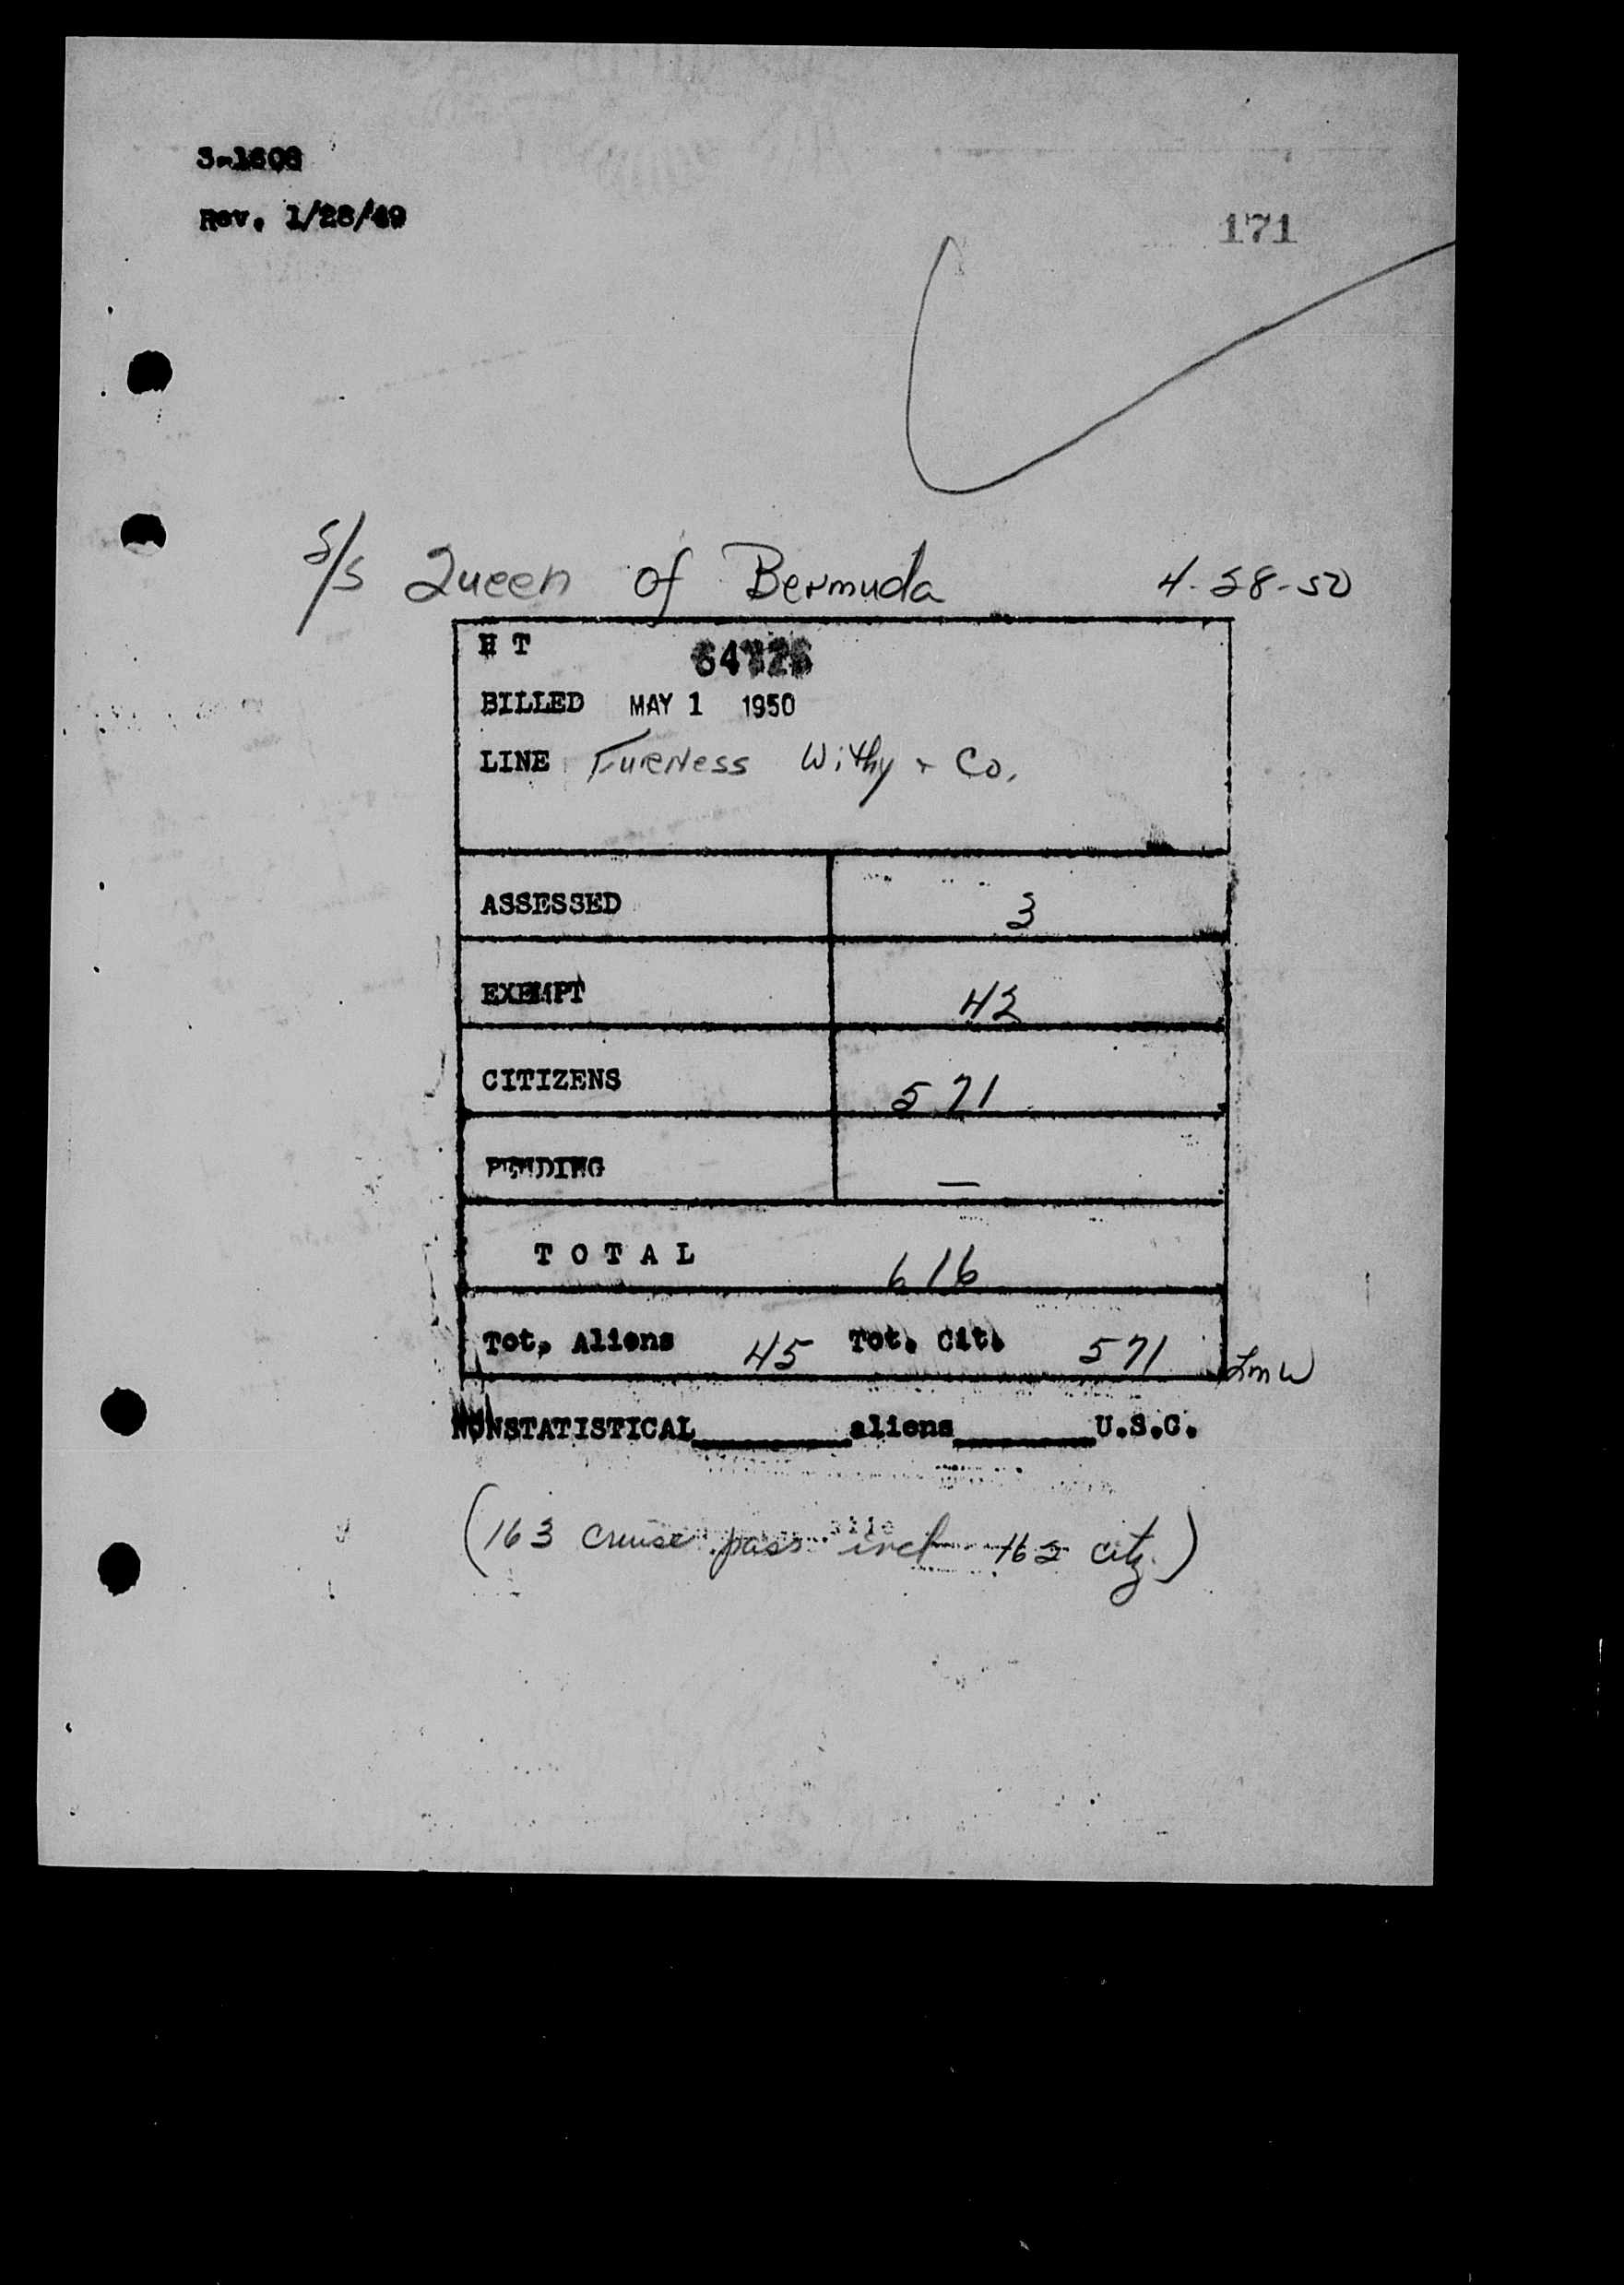 3-1608
Rev. 1/28/49
171
S/S Queen of Bermuda 4-28-50
H T
BILLED MAY 1 1950
LINE Furness Withy & Co.
ASSESSED 3
EXEMPT 42
CITIZENS 571
PENDING —
TOTAL 616
Tot, Aliens 45 Tot. Cit. 571 LMW
NONSTATISTICAL________aliens________U.S.C.
(163 cruise pass incl 162 citz.)